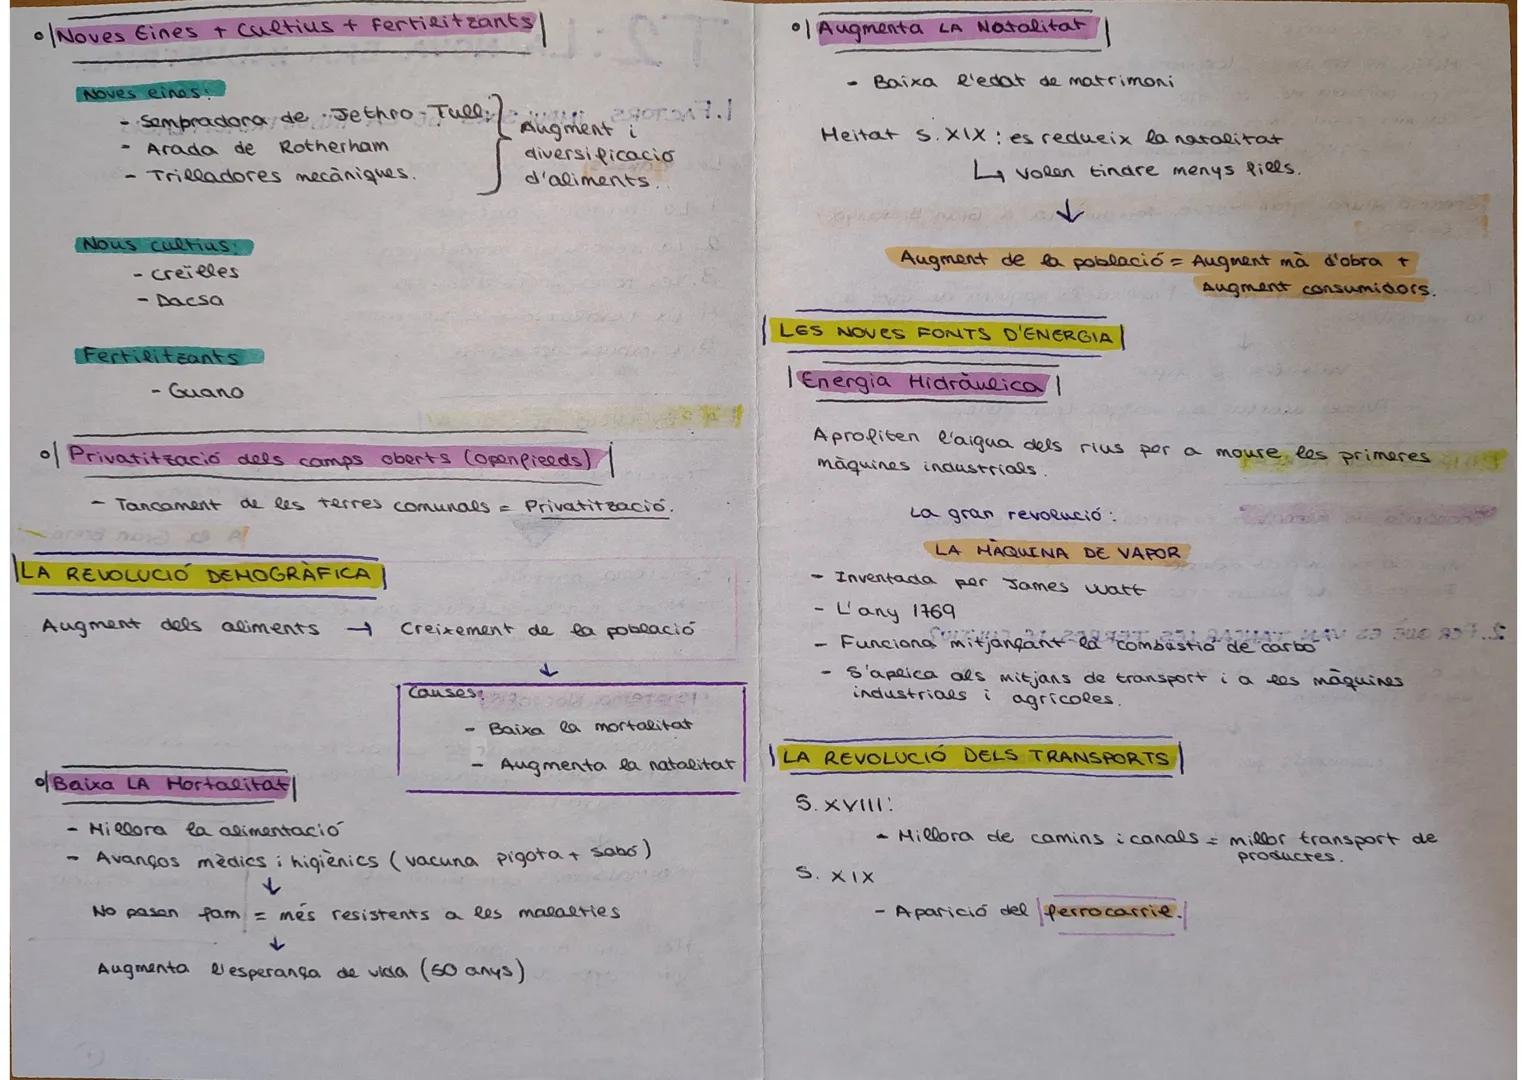 Noves Eines + Cultius + Fertilitzants
Noves eines:
- Sembradora de Jethro-Tull.
- Arada de Rotherham
- Trilladores mecàniques.
Augment i
diversificació
d'aliments.
Nous cultius:
- creïlles
- Dacsa
Fertilitzants
- Guano
Privatització dels camps oberts (openfields)
- Tancament de les terres comunals = Privatització.
LA REVOLUCIÓ DEMOGRÀFICA
Augment dels aliments → Creixement de la població
↓
Causes:
- Baixa la mortalitat
- Augmenta la natalitat
Baixa LA Mortalitat
- Millora la alimentació
- Avanços mèdics i higiènics (vacuna pigota + sabó)
↓
No pasen fam = més resistents a les malalties
↓
Augmenta l'esperança de vida (50 anys)
Augmenta LA Natalitat
- Baixa l'edat de matrimoni
Meitat s. XIX: es redueix la natalitat
↳ volen tindre menys fills.
↓
Augment de la població = Augment mà d'obra +
Augment consumidors.
LES NOVES FONTS D'ENERGIA
Energia Hidràulica
Aprofiten l'aigua dels rius per a moure les primeres
màquines industrials.
La gran revolució:
LA MÀQUINA DE VAPOR
- Inventada per James Watt
- L'any 1769
- Funciona mitjançant la combustió de carbó
- S'aplica als mitjans de transport i a les màquines
industrials i agrícoles.
LA REVOLUCIÓ DELS TRANSPORTS
S. XVIII:
- Millora de camins i canals = millor transport de
productes.
S. XIX
- Aparició del ferrocarril.